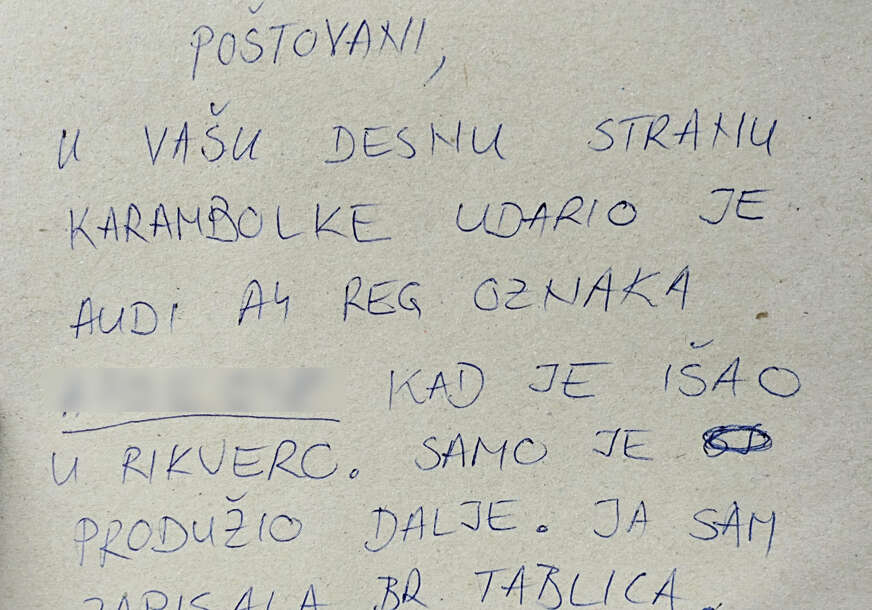 POŠTOVANI,
U VAŠU DESNU STRANU
KARAMBOLKE UDARIO JE
AUDI A4 REG OZNAKA
KAD JE IŠAO
U RIKVERC. SAMO JE
PRODUŽIO DALJE. JA SAM
ZAPISALA BR. TABLICA.